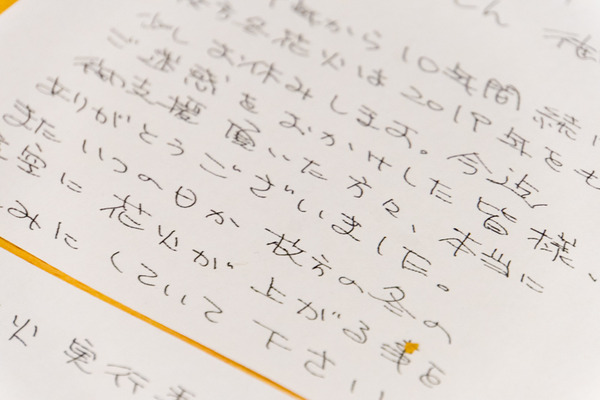 から 10年間 続い
方冬花火は2019年をも
少しお休みします。今迄
ご迷惑をおかけした皆様、
御支援頂いた方々、本当に
ありがとうございました。
またいつの日か 枚方の冬の
空に花火が上がる事を
みにしていて下さい
火 実行